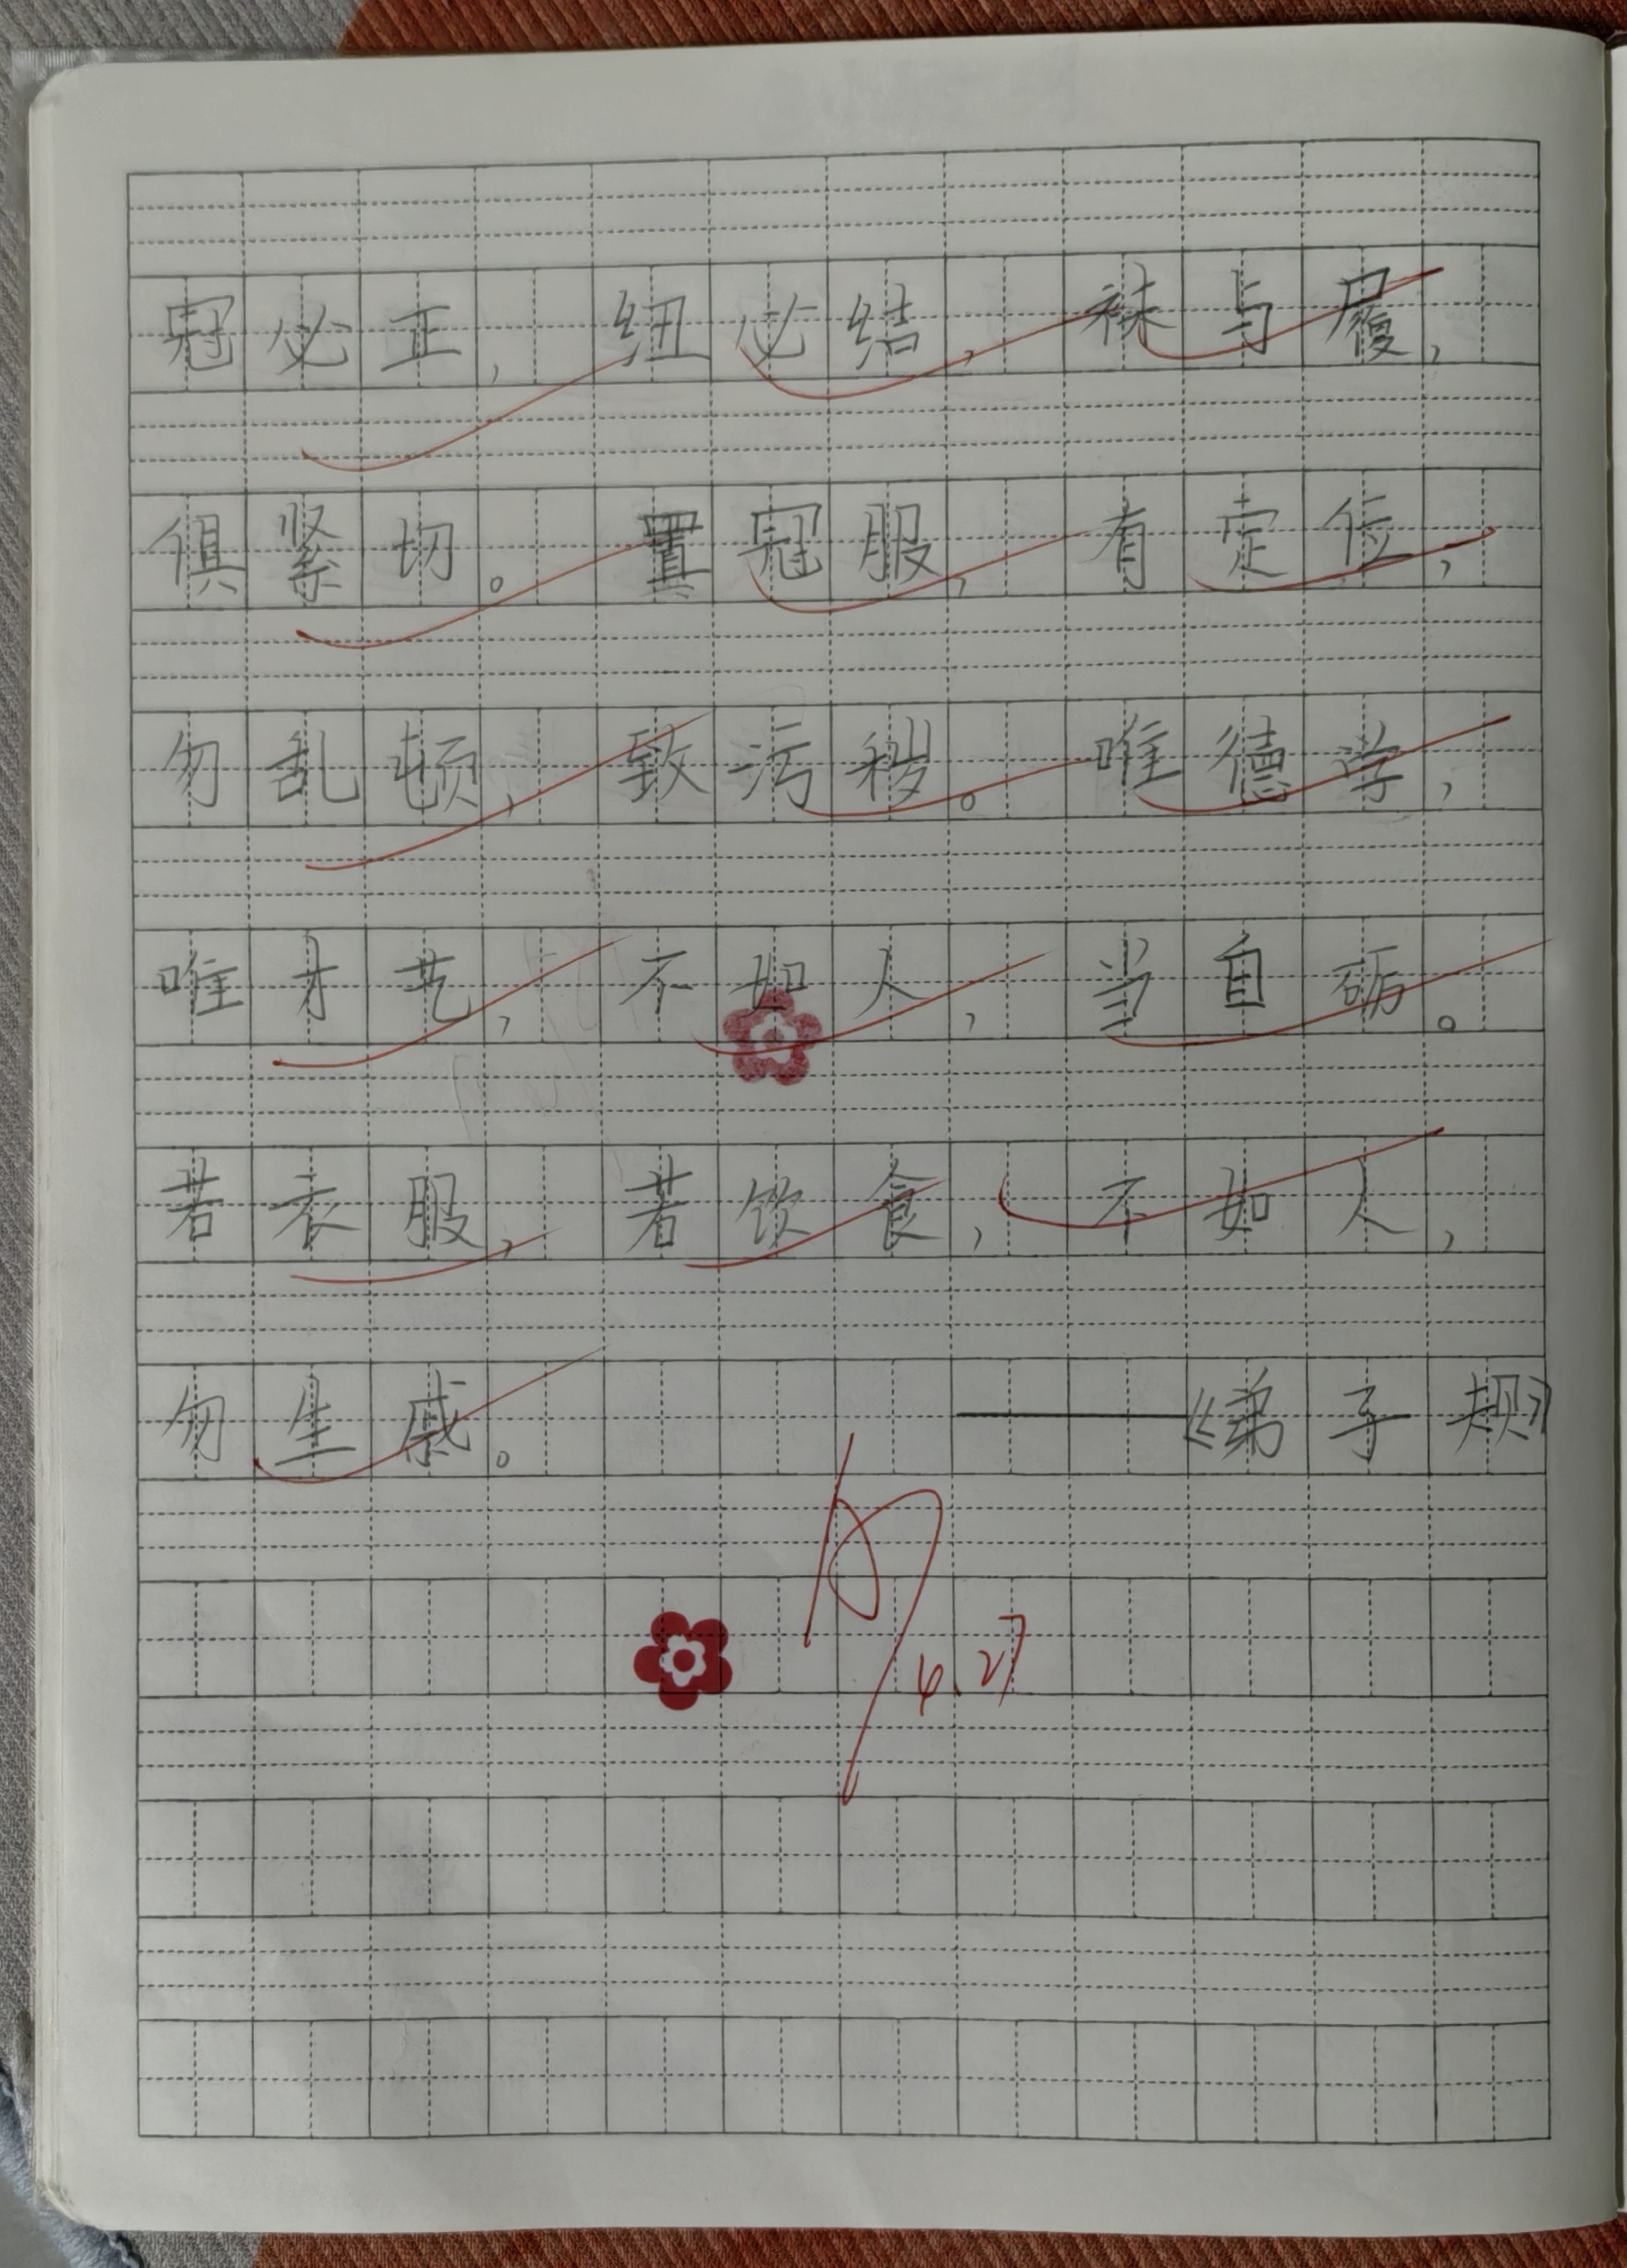 冠必正，纽必结，袜与履，
俱紧切。置冠服，有定位，
勿乱顿，致污秽。唯德学，
唯才艺，不如人，当自砺。
若衣服，若饮食，不如人，
勿生戚。——《弟子规》
4.27